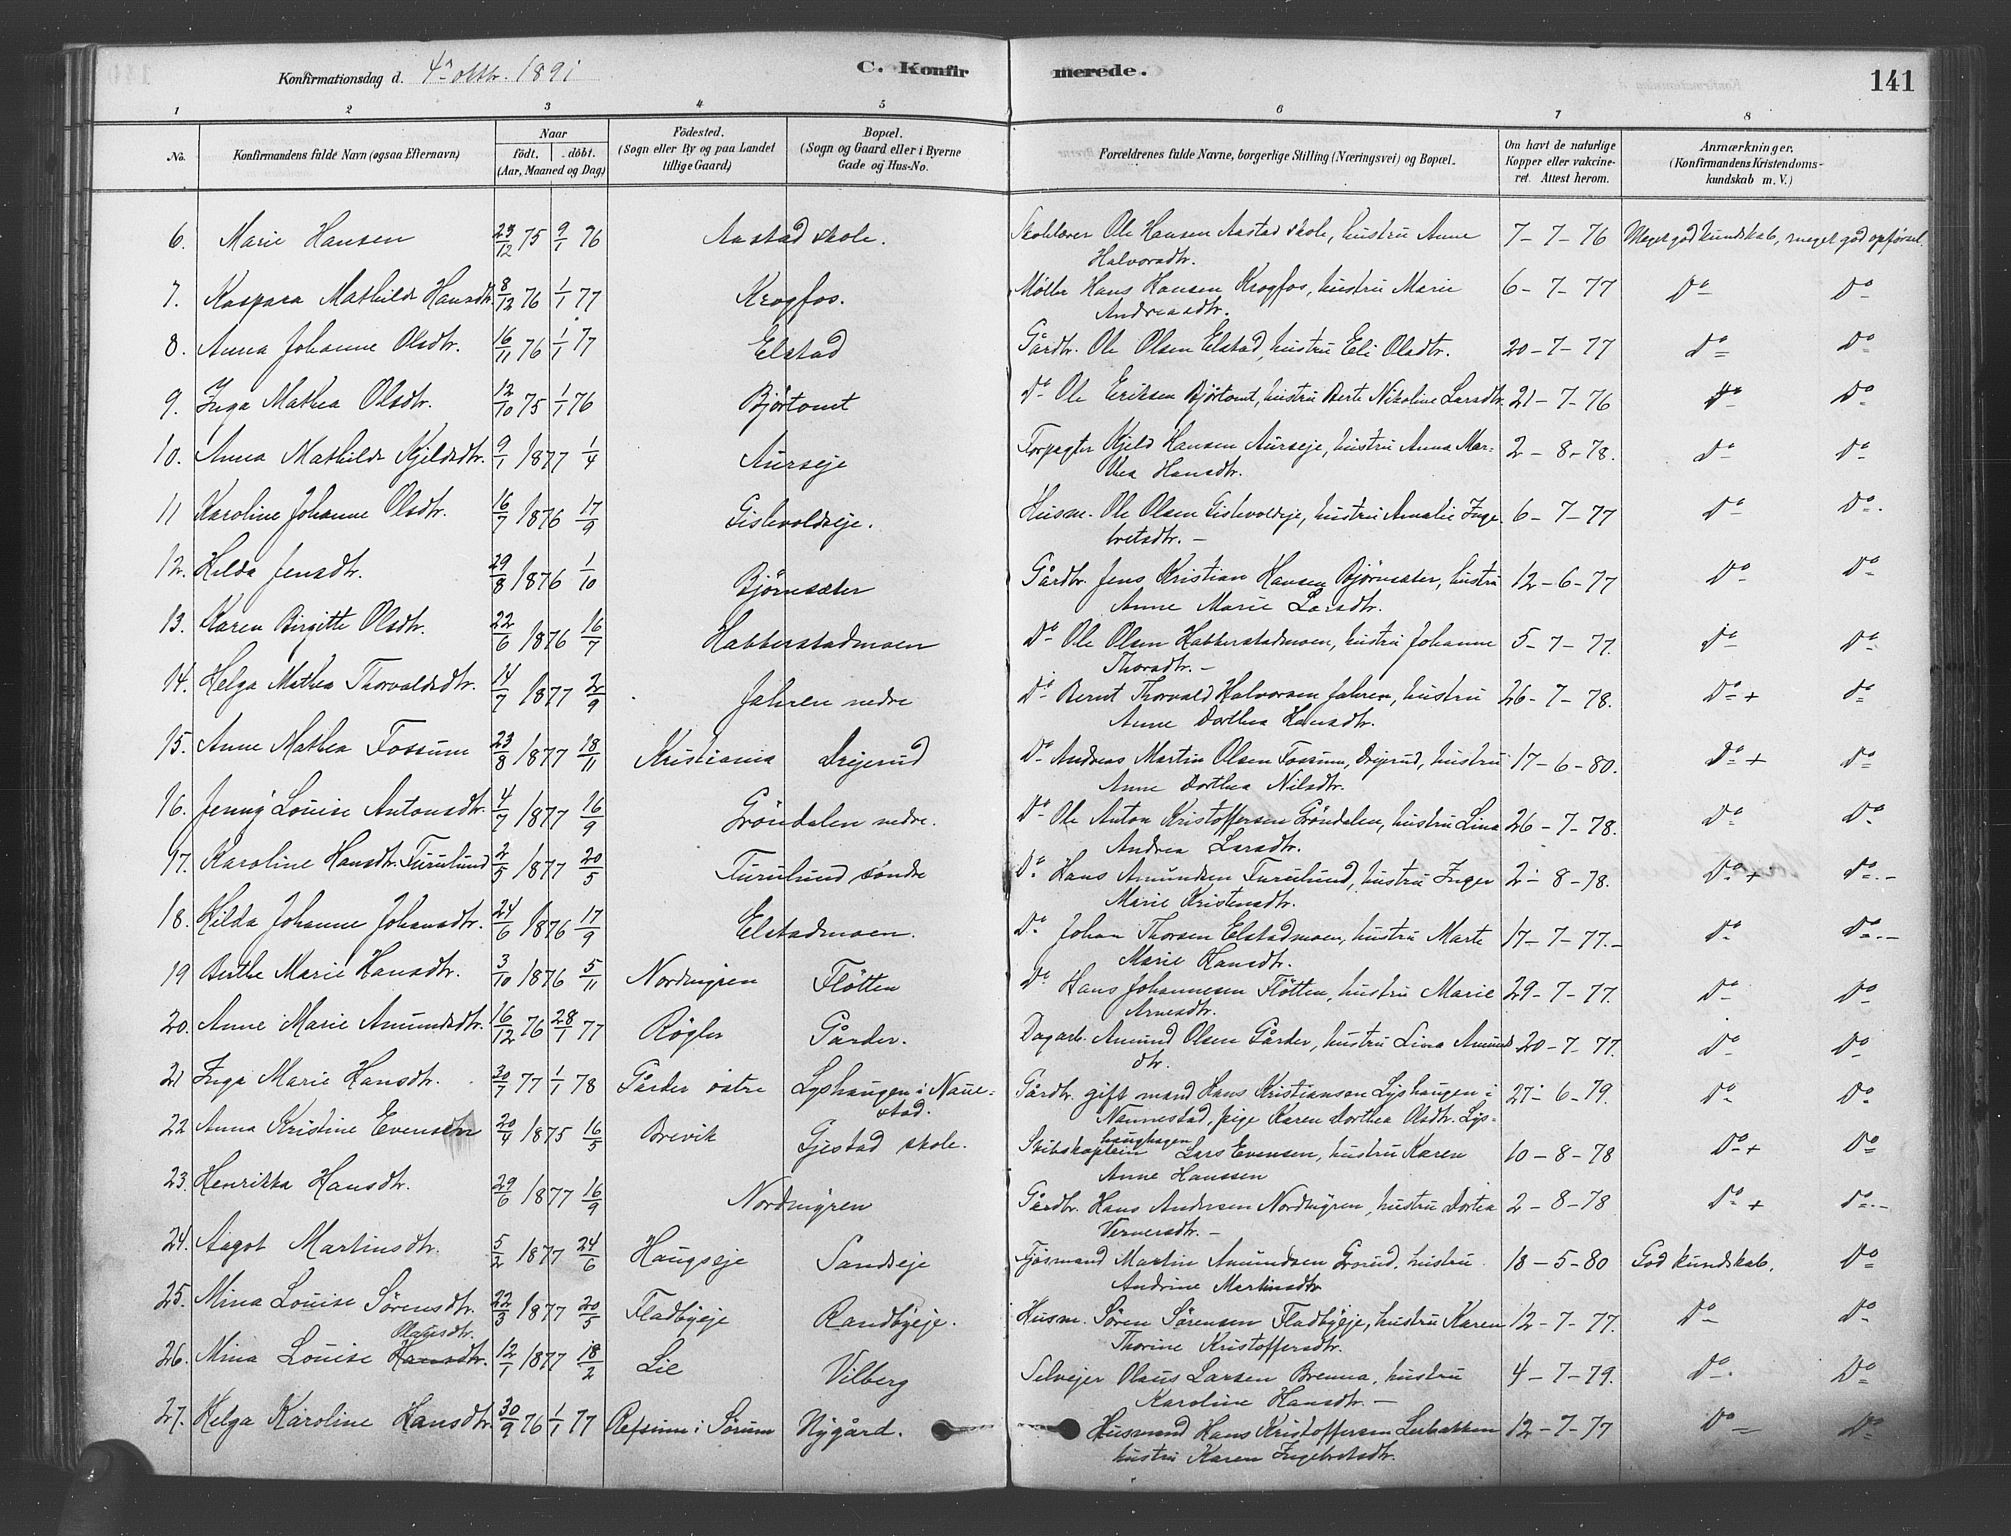 Konfirmationsdag d. 4de oktbr. 1891
C. Konfirmerede.
141
1 2 3 4 5 6 7 8
No. Konfirmandens fulde Navn (ogsaa Efternavn) Naar født. døbt. (Aar, Maaned og Dag) Fødested. (Sogn eller By og paa Landet tillige Gaard) Bopæl. (Sogn og Gaard eller i Byerne Gade og Hus-No. Forældrenes fulde Navne, borgerlige Stilling (Næringsvei) og Bopæl. Om havt de naturlige Kopper eller vakcineret. Attest herom. Anmærkninger. (Konfirmandens Kristendomskundskab m. V.)
6. Marie Hansen 23/12 75 9/1 76 Aastad skole. Skolelærer Ole Hansen Aastad skole, hustru Anne 7-7-76 Meget god kundskab, meget god opførsel.
Halvorsdtr.
7. Kaspara Mathilde Hansdtr. 8/12 76 1/1 77 Krogfos. Møller Hans Hansen Krogfos, hustru Marie 6-7-77 Do Do
Andreasdtr.
8. Anna Johanne Olsdtr. 16/11 76 1/1 77 Elstad Gårdbr. Ole Olsen Elstad, hustru Eli Olsdtr. 20-7-77 Do Do
9. Inga Mathea Olsdtr. 12/10 75 1/1 76 Bjørtomt Do Ole Eriksen Bjørtomt, hustru Berte Nikoline Larsdtr. 21-7-76 Do Do
10. Anna Mathilde Kjeldsdtr. 9/1 1877 1/4 Aurseje Forpagter Kjeld Hansen Aurseje, hustru Anna Mar- 2-8-78. Do Do
thea Hansdtr.
11 Karoline Johanne Olsdtr. 16/7 1876 17/9 Gislevoldseje. Husm. Ole Olsen Gislevoldeje, hustru Amalie Inge 6-7-77 Do Do.
bretsdtr. -
12. Hilda Jensdtr. 29/8 1876 1/10 Bjørnsæter Gårdbr. Jens Kristian Hansen Bjørnsæter, hustru 12-6-77 Do Do
Anne Marie Larsdtr.
13. Karen Birgitte Olsdtr. 22/6 1876 16/7 Habberstadmoen Do Ole Olsen Habberstadmoen, hustru Johanne 5-7-77. Do Do
Thorsdtr. -
14. Helga Mathea Thorvaldsdtr. 14/7 1877 2/9 Jahren nedre Do Bernt Thorvald Halvorsen Jahren, hustru 26-7-78. Do + do
Anne Dorthea Hansdtr.
15. Anne Mathea Fossum 23/8 1877 18/11 Kristiania Drejerud Do Andreas Martin Olsen Fossum, Drejrud, hustru 17-6-80. Do + Do
Anne Dorthea Nilsdtr.
16. Jenny Louise Antonsdtr. 4/7 1877 16/9 Gröndalen nedre. Do Ole Anton Kristoffersen Gröndalen, hustru Lina 26-7-78. Do Do
Andrea Larsdtr.
17. Karoline Hansdtr. Furulund 2/5 1877 20/5 Furulund söndre Do Hans Amundsen Furulund, hustru Inger 2-8-78. Do + Do.-
Marie Kristensdtr.
18. Hilda Johanne Johansdtr. 24/6 1876 17/9 Elstadmoen. Do Johan Thorsen Elstadmoen, hustru Marte 17-7-77.- Do Do.-
Marie Hansdtr.
19 Berthe Marie Hansdtr. 3/10 1876 5/11 Nordmyren Fløtten Do Hans Johannesen Fløtten, hustru Marie 29-7-77. Do Do
Arnesdtr.
20. Anne Marie Amundsdtr. 16/12 76 28/1 77 Røgler Gårder. Dagarb. Amund Olsen Gårder, hustru Lina Amunds 20-7-77. Do Do
dtr.
21 Inga Marie Hansdtr. 30/7 77 1/1 78 Gårder östre Lyshaugen i Nannestad. Gårdbr. gift mand Hans Kristiansen Lyshaugen i 27-6-79. Do Do
Nannestad, pige Karen Dorthea Olsdtr. Lys-
haughagen
22 Anna Kristine Evensen 20/4 1875 16/5 Brevik Gjestad skole. Skibskaptein Lars Evensen, hustru Karen 10-8-78 Do + Do
Anne Hanssen
23. Henrikka Hansdtr. 29/6 1877 16/9 Nordmyren Gårdbr. Hans Andersen Nordmyren, hustru Dortea 2-8-78 Do + Do.-
Vernersdtr. -
24. Aagot Martinsdtr. 5/2 1877 24/6 Haugseje Sandseje Fjøsmand Martin Amundsen Grorud, hustru 18-5-80 God kundskab. Do
Andrine Martinsdtr
25. Mina Louise Sørensdtr. 22/3 1877 20/5 Fladbyeje Randbyeje. Husm. Søren Sørensen Fladbyeje, hustru Karen 12-7-77. Do Do
Thorine Kristoffersdtr.
Olausdtr.
26. Mina Louise Hansdtr. 12/1 1877 18/2 Lie Vilberg Selvejer Olaus Larsen Brenna, hustru 4-7-79. Do. Do
Karoline Hansdtr. -
27. Helga Karoline Hansdtr 30/9 76 1/1 77 Refsum i Sørum Nygård. Husmand Hans Kristoffersen Lerbakken 12-7-77 Do Do
hustru Karen Ingebretsdtr.